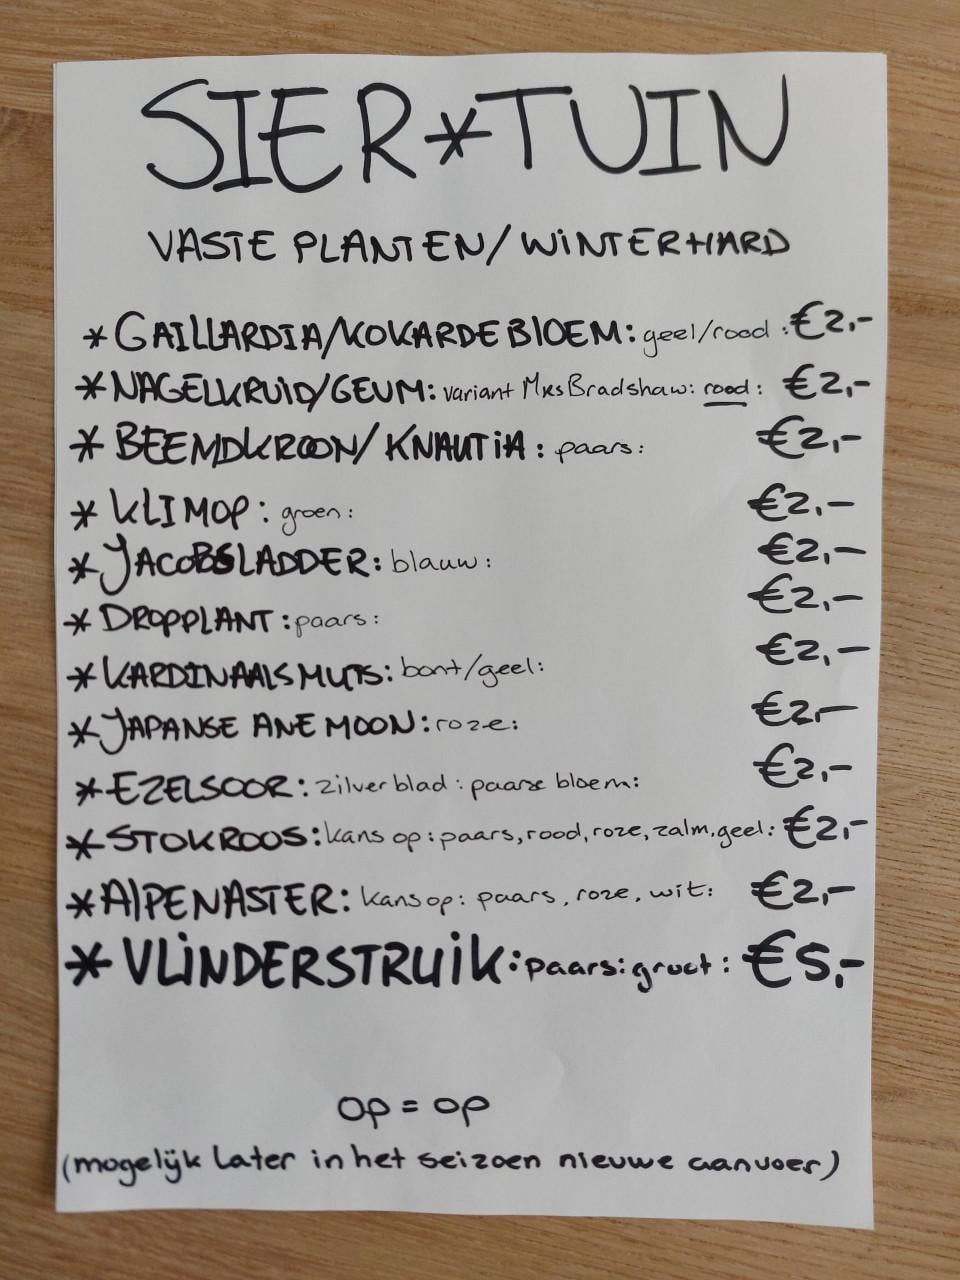 SIER*TUIN
VASTE PLANTEN/WINTERHARD
* GAILLARDIA/KOKARDEBLOEM: geel/rood: €2,-
* NAGELKRUID/GEUM: variant Mrs Bradshaw: rood: €2,-
* BEEMDKROON/KNAUTIA: paars: €2,-
* KLIMOP: groen: €2,-
* JACOBSLADDER: blauw: €2,-
* DROPPLANT: paars: €2,-
* KARDINAALSMUTS: bont/geel: €2,-
* JAPANSE ANEMOON: roze: €2,-
* EZELSOOR: zilver blad: paarse bloem: €2,-
* STOKROOS: kans op: paars, rood, roze, zalm, geel: €2,-
* ALPENASTER: kans op: paars, roze, wit: €2,-
* VLINDERSTRUIK: paars: groot: €5,-
op = op
(mogelijk later in het seizoen nieuwe aanvoer)